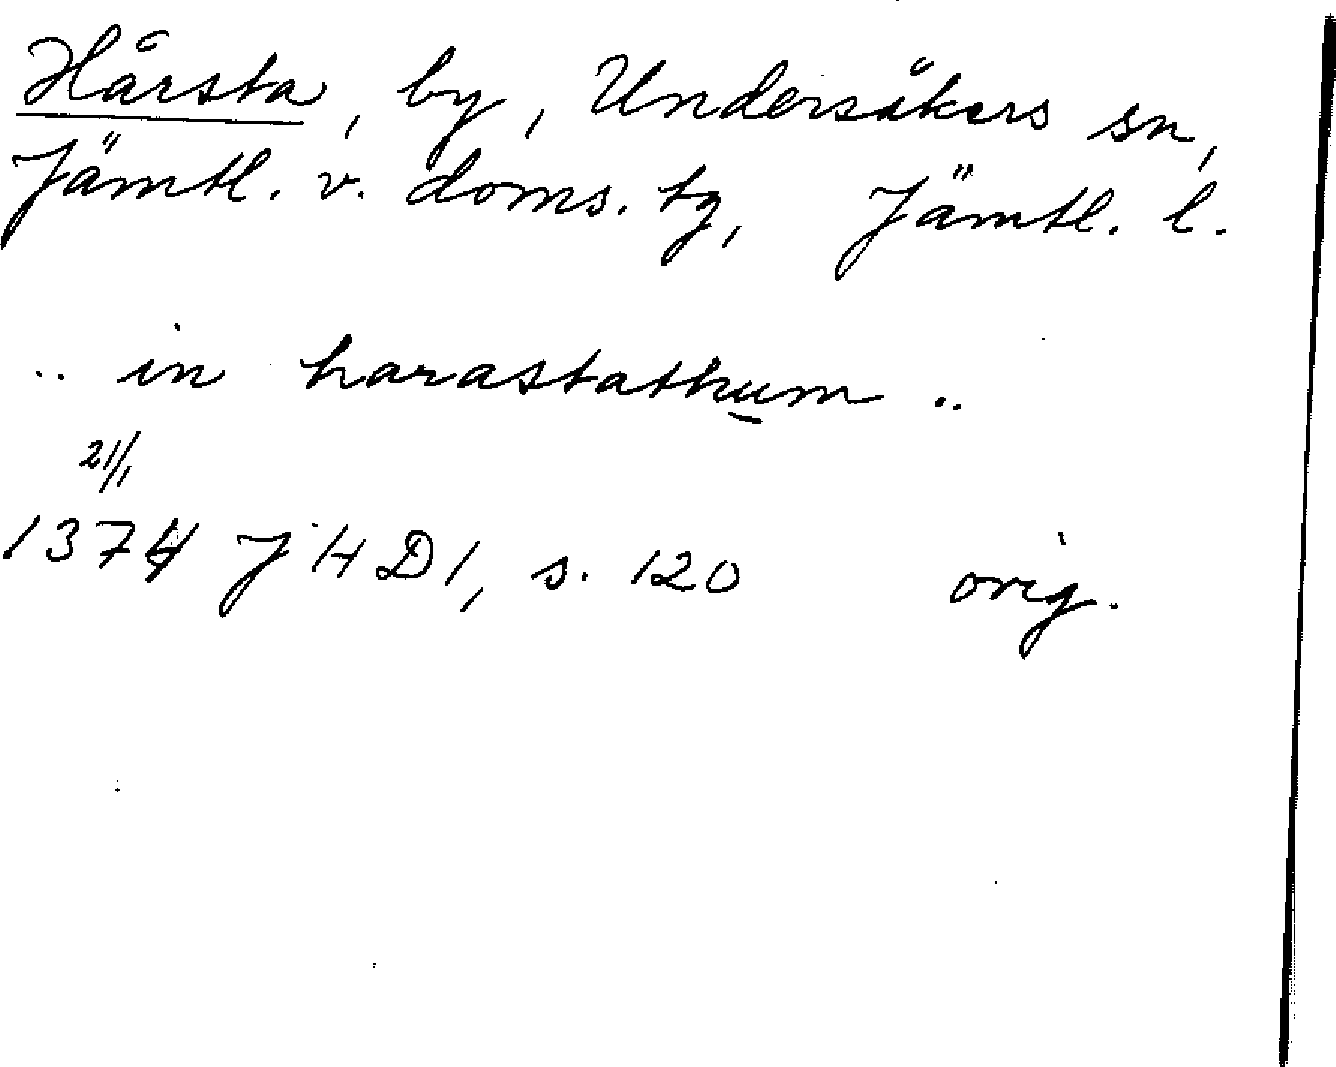 Hårsta, by, Undersåkers sn,
Jämtl. v. doms. tg, Jämtl. l.
.. in harastathum ..
21/1
1374 JHD1, s. 120 orig.